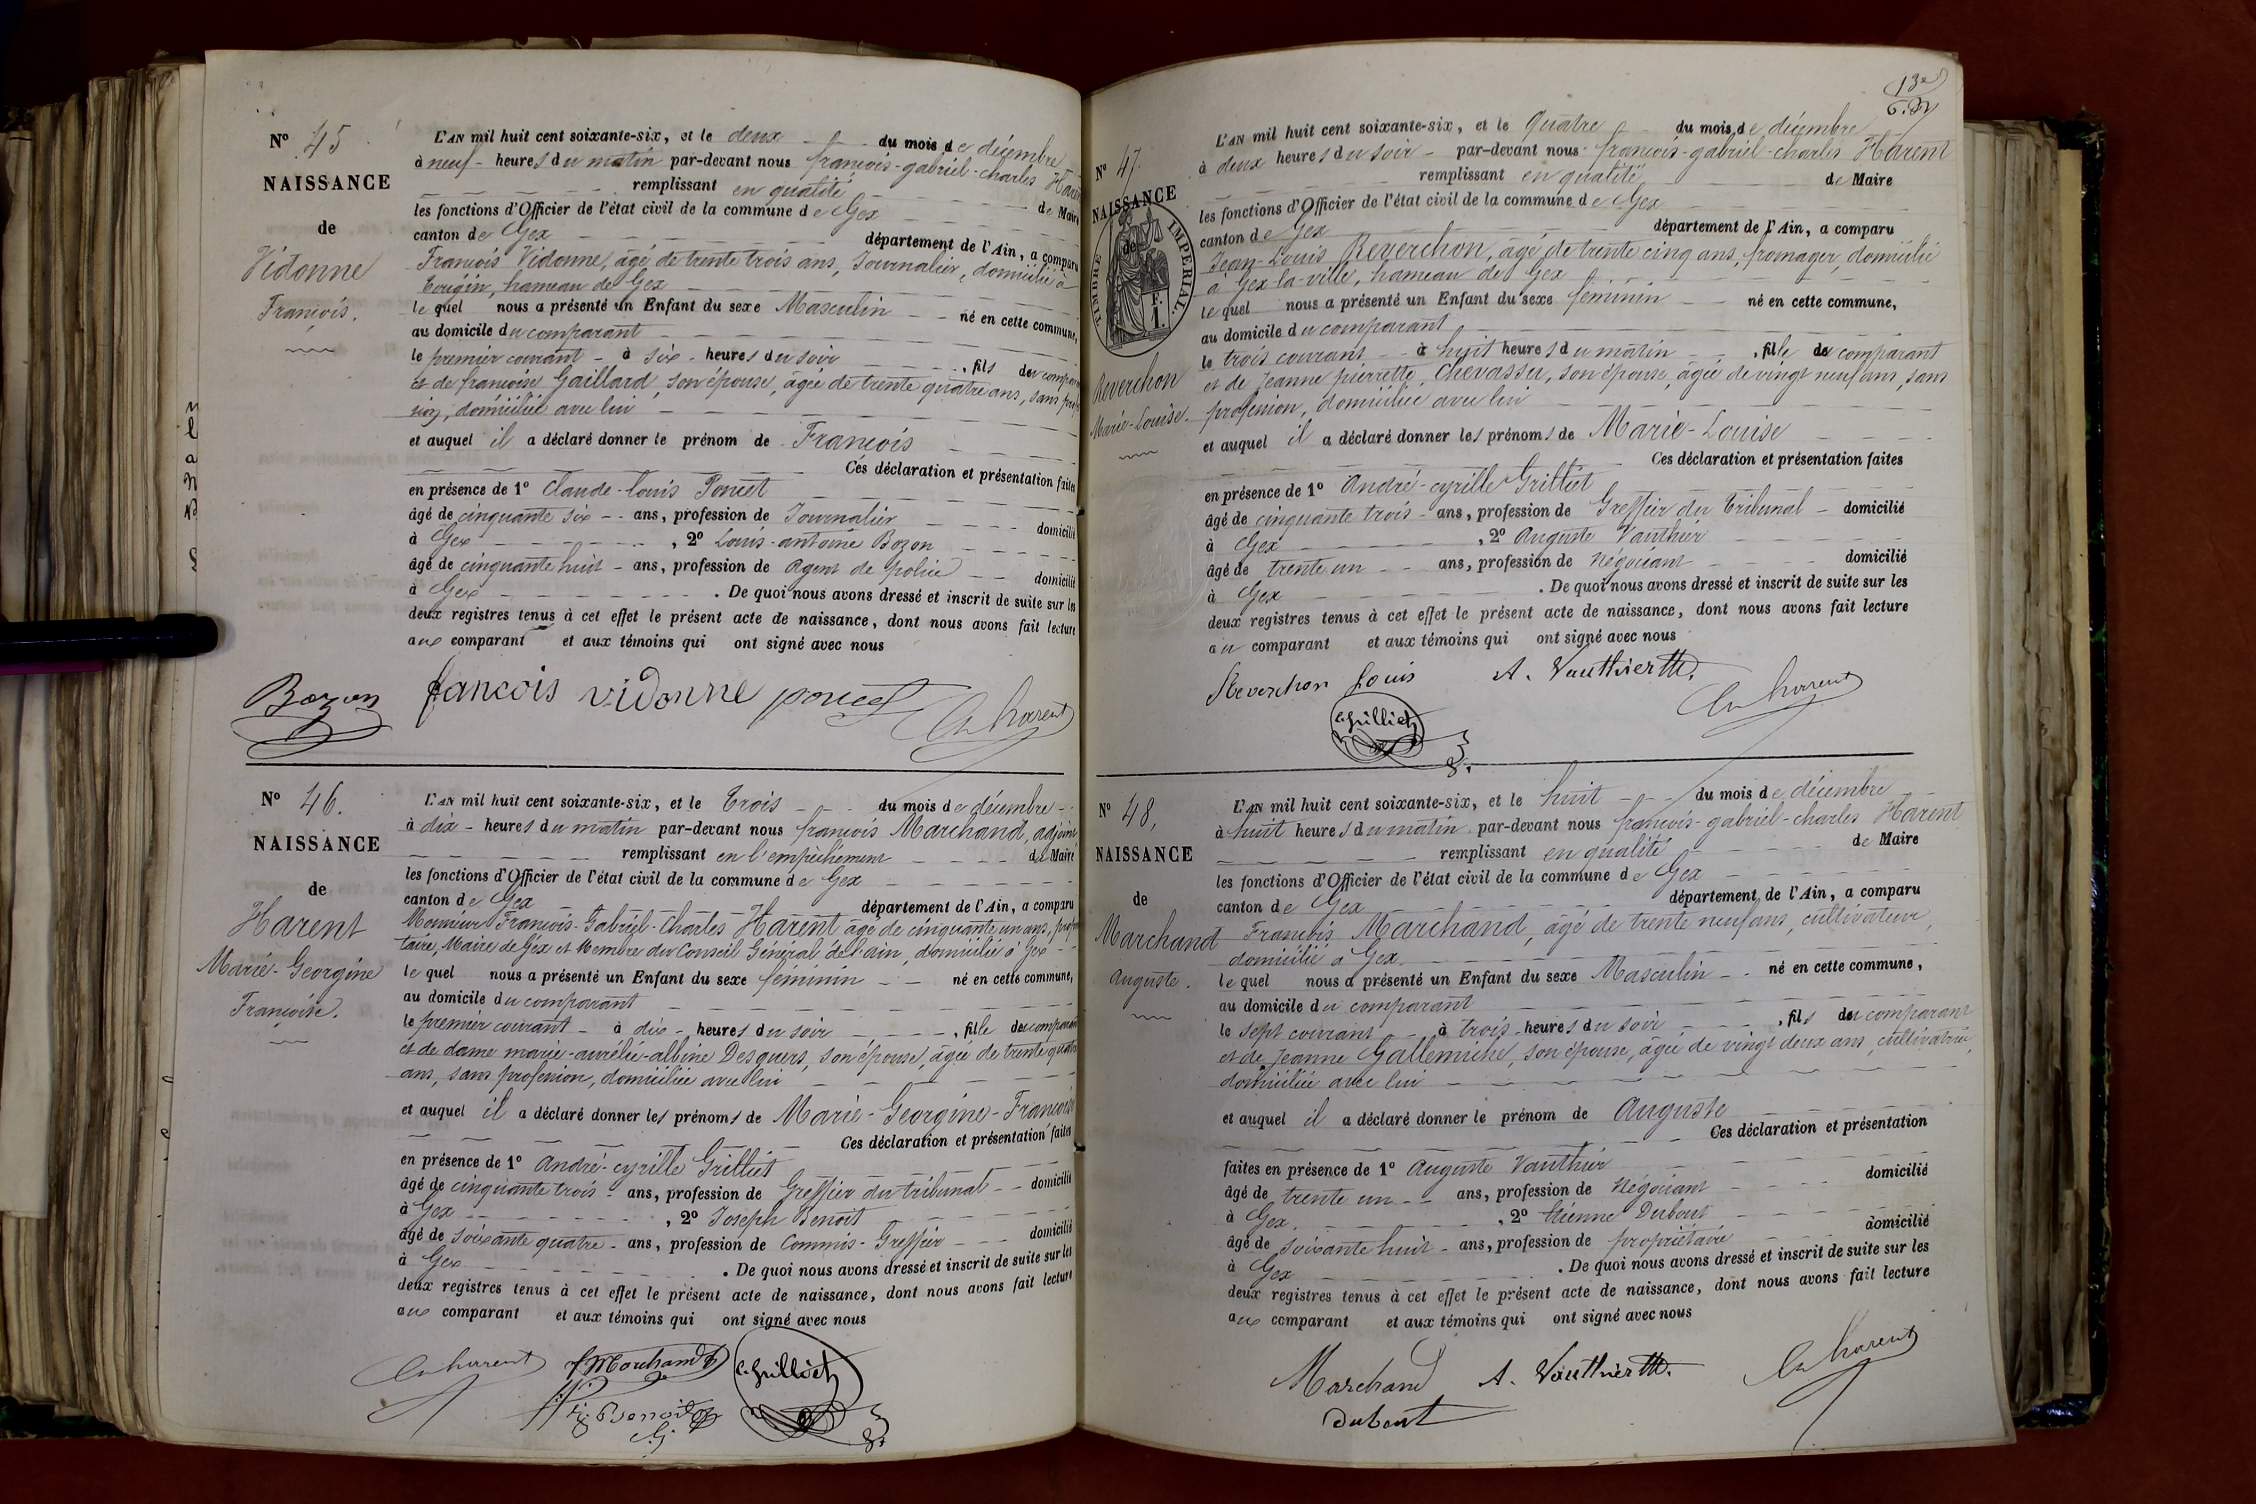 Nº 45
NAISSANCE
de
Vidonne
François.
L'AN mil huit cent soixante-six, et le deux du mois de décembre
à neuf heures du matin par-devant nous françois-gabriel-charles Harent
remplissant en qualité de Maire
les fonctions d'Officier de l'état civil de la commune de Gex
canton de Gex département de l'Ain, a comparu
François Vidonne, agé de trente trois ans, Journalier, domicilié à
Tougin, hameau de Gex
le quel nous a présenté un Enfant du sexe Masculin né en cette commune,
au domicile du comparant
le premier courant à six heures du soir, fils du comparant
et de françoise Gaillard, son épouse, agée de trente quatre ans, sans profes
sion, domiciliée avec lui
et auquel il a déclaré donner le prénom de François
Ces déclaration et présentation faites
en présence de 1º Claude-Louis Poncet
âgé de cinquante six ans, profession de Journalier domicilié
à Gex, 2º Louis-antoine Bozon
âgé de cinquante huit ans, profession de agent de police domicilié
à Gex. De quoi nous avons dressé et inscrit de suite sur les
deux registres tenus à cet effet le présent acte de naissance, dont nous avons fait lecture
aux comparant et aux témoins qui ont signé avec nous
Bozon francois vidonne poncet Ch harent
Nº 46.
NAISSANCE
de
Harent
Marie-Georgine
Françoise.
L'AN mil huit cent soixante-six, et le trois du mois de décembre
à dix heures du matin par-devant nous françois Marchand, adjoint
remplissant en l'empêchement de Maire
les fonctions d'Officier de l'état civil de la commune de Gex
canton de Gex département de l'Ain, a comparu
Monsieur François-Gabriel-Charles Harent agé de cinquante un ans, proprié
taire, Maire de Gex et Membre du Conseil Général de l'ain, domicilié à Gex
le quel nous a présenté un Enfant du sexe féminin né en cette commune,
au domicile du comparant
le premier courant à dix heures du soir, fille du comparant
et de dame marie-aurélie-albine Desquers, son épouse, agée de trente quatre
ans, sans profession, domiciliée avec lui
et auquel il a déclaré donner les prénoms de Marie-Georgine-Françoise
Ces déclaration et présentation faites
en présence de 1º André-cyrille Grilliet
âgé de cinquante trois ans, profession de Greffier du tribunal domicilié
à Gex, 2º Joseph Benoit
âgé de soixante quatre ans, profession de Commis-Greffier domicilié
à Gex. De quoi nous avons dressé et inscrit de suite sur les
deux registres tenus à cet effet le présent acte de naissance, dont nous avons fait lecture
aux comparant et aux témoins qui ont signé avec nous
Ch harent f Marchand C. Grilliet
Benoit
13e
Nº 47.
NAISSANCE
de
TIMBRE IMPERIAL
F.
1.
Reverchon
Marie-Louise.
L'AN mil huit cent soixante-six, et le Quatre du mois de décembre
à deux heures du soir par-devant nous françois-gabriel-charles Harent
remplissant en qualité de Maire
les fonctions d'Officier de l'état civil de la commune de Gex
canton de Gex département de l'Ain, a comparu
Jean-Louis Reverchon, agé de trente cinq ans, fromager, domicilié
à Gex la ville, hameau de Gex
le quel nous a présenté un Enfant du sexe féminin né en cette commune,
au domicile du comparant
le trois courant à huit heures du matin, fille du comparant
et de Jeanne pierrette Chevassu, son épouse, agée de vingt neuf ans, sans
profession, domiciliée avec lui
et auquel il a déclaré donner les prénoms de Marie-Louise
Ces déclaration et présentation faites
en présence de 1º André-cyrille Grilliet
âgé de cinquante trois ans, profession de Greffier du tribunal domicilié
à Gex, 2º Auguste Vauthier
âgé de trente un ans, profession de Négociant domicilié
à Gex. De quoi nous avons dressé et inscrit de suite sur les
deux registres tenus à cet effet le présent acte de naissance, dont nous avons fait lecture
au comparant et aux témoins qui ont signé avec nous
Reverchon Louis A. Vauthier Ch harent
C. Grilliet
Nº 48,
NAISSANCE
de
Marchand
Auguste.
L'AN mil huit cent soixante-six, et le huit du mois de décembre
à huit heures du matin par-devant nous françois-gabriel-charles Harent
remplissant en qualité de Maire
les fonctions d'Officier de l'état civil de la commune de Gex
canton de Gex département de l'Ain, a comparu
François Marchand, agé de trente neuf ans, cultivateur,
domicilié à Gex
le quel nous a présenté un Enfant du sexe Masculin né en cette commune,
au domicile du comparant
le sept courant à trois heures du soir, fils du comparant
et de Jeanne Gallemiche, son épouse, agée de vingt deux ans, cultivatrice,
domiciliée avec lui
et auquel il a déclaré donner le prénom de Auguste
Ces déclaration et présentation
faites en présence de 1º Auguste Vauthier
âgé de trente un ans, profession de Négociant domicilié
à Gex, 2º Etienne Dubout
âgé de soixante huit ans, profession de propriétaire domicilié
à Gex. De quoi nous avons dressé et inscrit de suite sur les
deux registres tenus à cet effet le présent acte de naissance, dont nous avons fait lecture
aux comparant et aux témoins qui ont signé avec nous
Marchand A. Vauthier Ch harent
Dubout